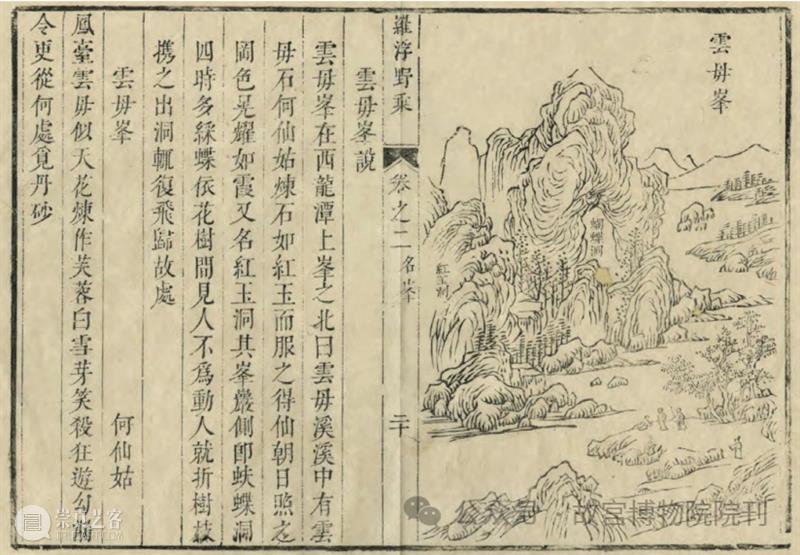 雲毋峯
蝴蝶洞
紅玉洞
羅浮野乘 卷之二 名峯 二十
雲毋峯說
雲毋峯在西龍潭上峯之北曰雲毋溪溪中有雲
毋石何仙姑煉石如紅玉而服之得仙朝日照之
岡色晃耀如霞又名紅玉洞其峯巖側即蛺蝶洞
四時多綵蝶依花樹間見人不爲動人就折樹枝
携之出洞輒復飛歸故處
雲毋峯 何仙姑
鳳臺雲毋似天花煉作芙蓉白雪芽笑殺狂遊勾漏
令更從何處覓丹砂
公众号 · 故宫博物院院刊
崇真艺客